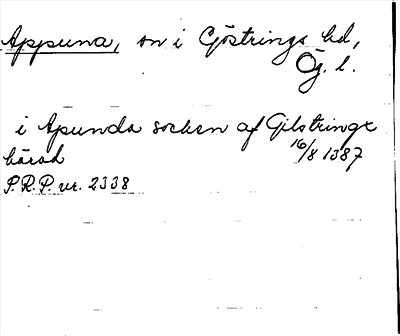 Appuna, sn i Göstrings hd,
Ög. l.
i Apunda socken af Gilstringx
härad 16/8 1387
P.R.P. nr. 2338